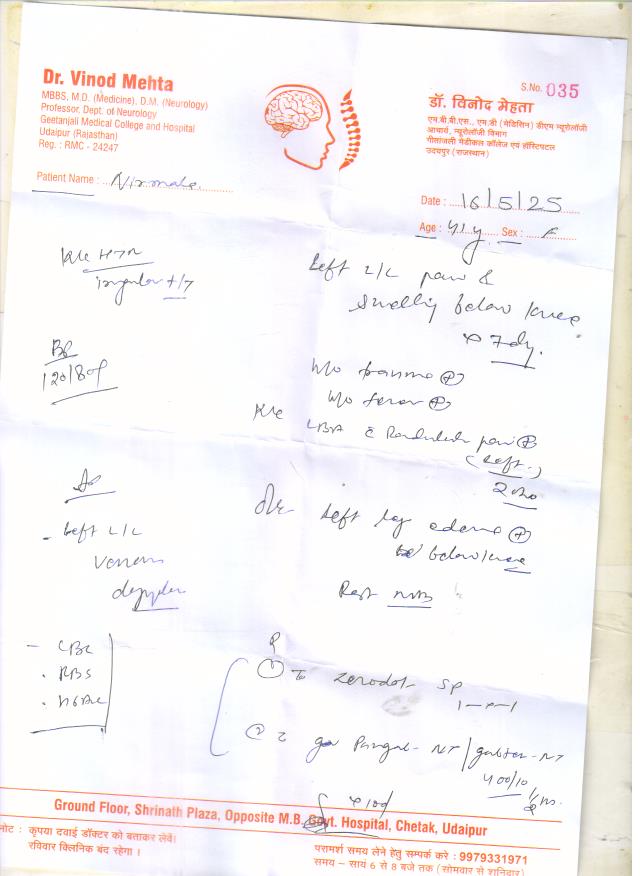 Dr. Vinod Mehta
MBBS, M.D. (Medicine), D.M. (Neurology)
Professor, Dept. of Neurology
Geetanjali Medical College and Hospital
Udaipur (Rajasthan)
Reg. : RMC - 24247
S.No. 035
डॉ. विनोद मेहता
एम.बी.बी.एस., एम.डी (मेडिसिन) डीएम न्यूरोलॉजी
आचार्य, न्यूरोलॉजी विभाग
गीतांजली मेडीकल कॉलेज एवं हॉस्पिटल
उदयपुर (राजस्थान)
Patient Name : Nirmala
Date : 16/5/25
Age : 41y Sex : F
K/c HTN
irregular t/t
Left L/L pain &
swelling below knee
x 7 day.
BP
120/80
H/o trauma
H/o fever
K/c LBA c Radicular pain
(Left)
Left L/L
venous
doppler
O/e Left leg edema +
below knee
Rest
- CBC
RBS
HbA1c
① Zerodol SP
1-x-1
② NT / gabton-NT
400/10
x 10d
Ground Floor, Shrinath Plaza, Opposite M.B. Govt. Hospital, Chetak, Udaipur
नोट : कृपया दवाई डॉक्टर को बताकर लेवें।
रविवार क्लिनिक बंद रहेगा ।
परामर्श समय लेने हेतु सम्पर्क करे : 9979331971
समय – सायं 6 से 8 बजे तक (सोमवार से शनिवार)